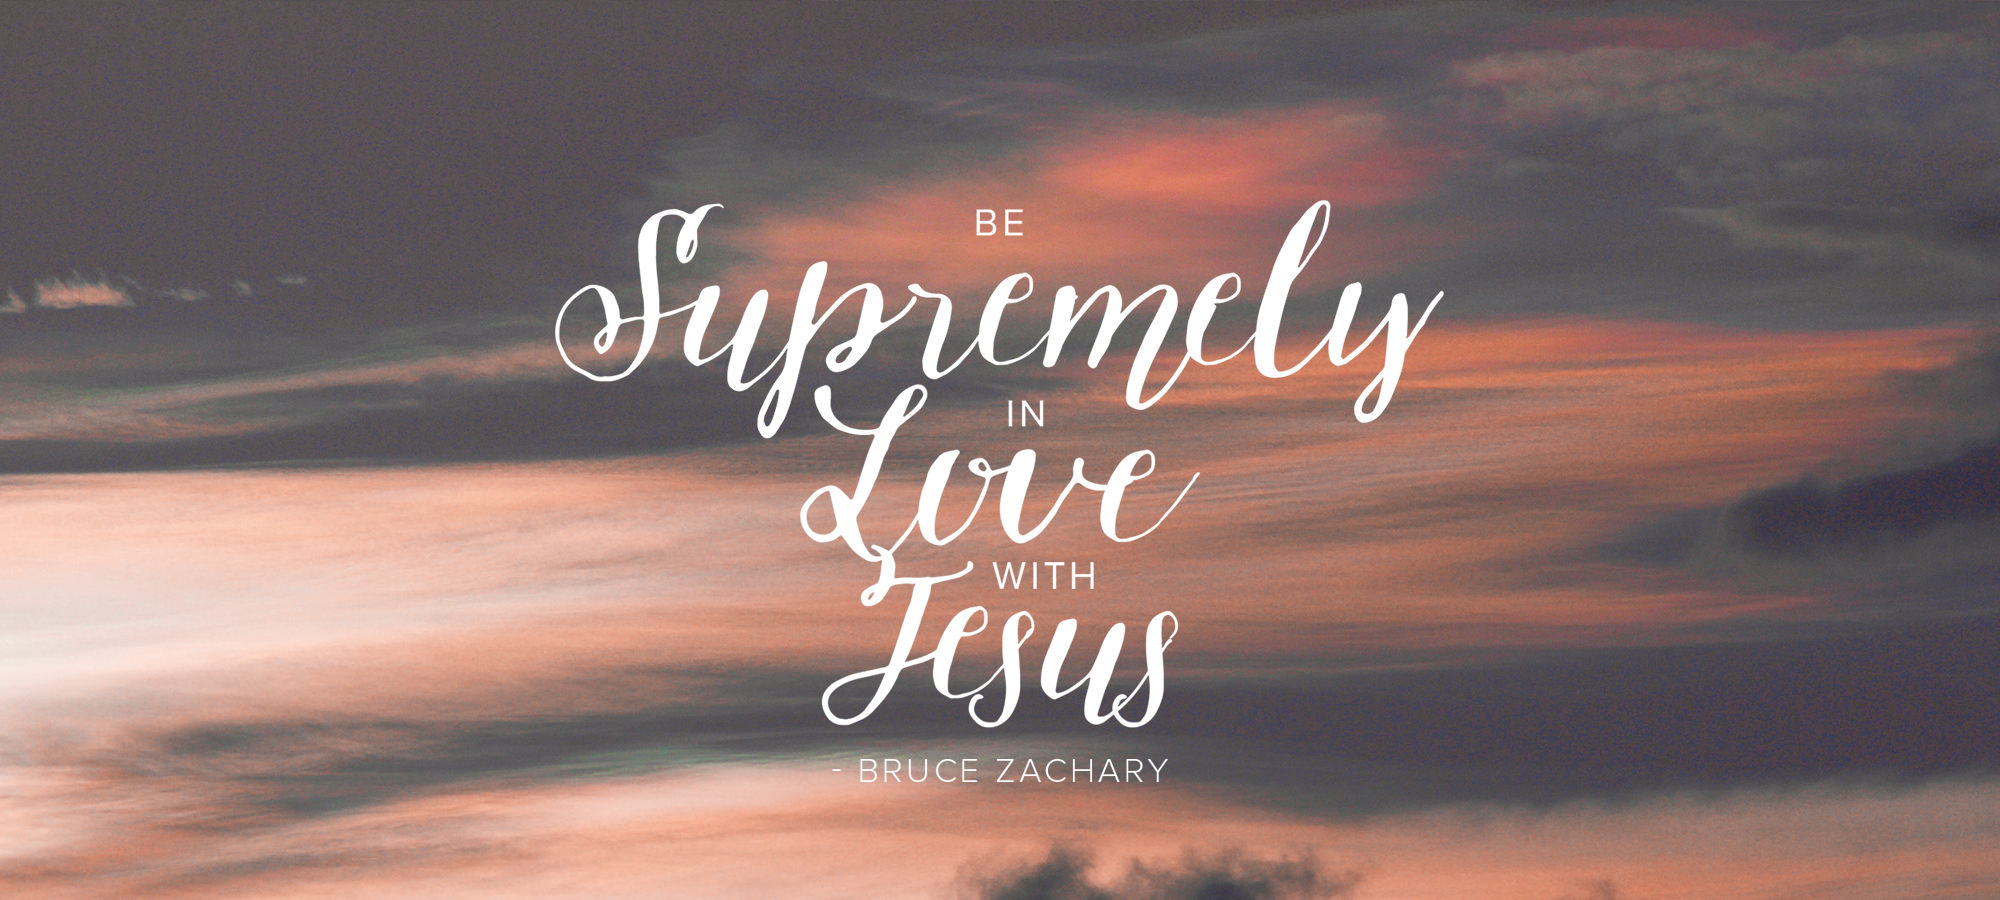 BE
Supremely
IN
Love
WITH
Jesus
- BRUCE ZACHARY